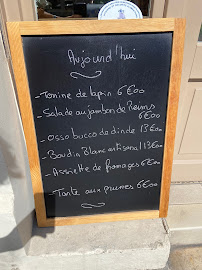 Aujourd'hui
- Terrine de lapin 6€00
- Salade au jambon de Reims 6€00
- Osso bucco de dinde 13€00
- Boudin Blanc artisanal 13€00
- Assiette de fromages 6€00
- Tarte aux prunes 6€00